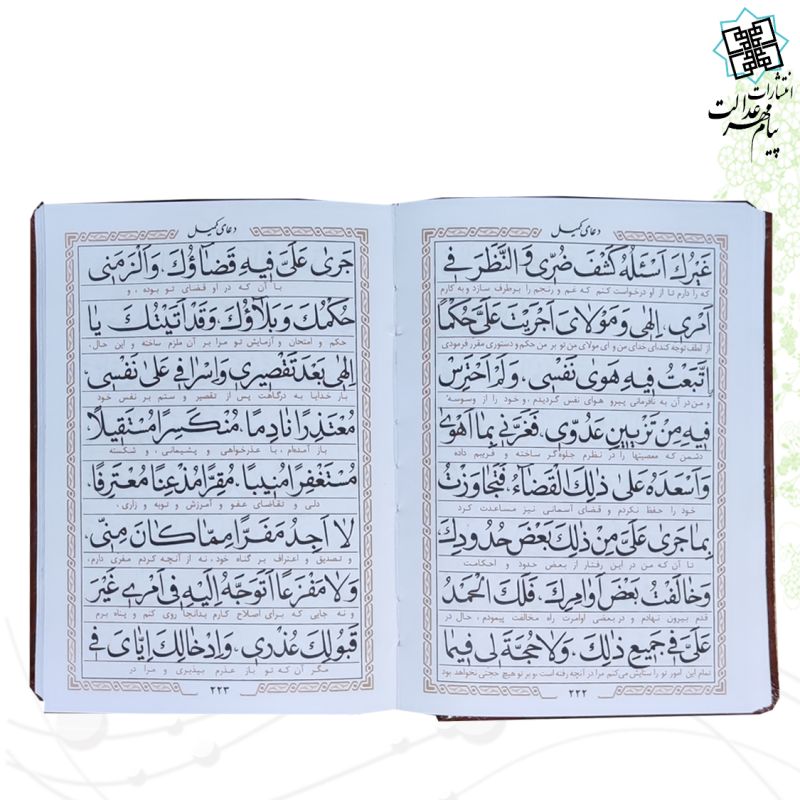 انتشارات
پیام مهر عدالت
دعای کمیل
غَيْرُكَ اَسْئَلُهُ كَشْفَ ضُرّى وَالنَّظَرَ فى
که را دارم تا از او درخواست کنم که غم و رنجم را برطرف سازد و به کارم
اَمْرى، اِلهى وَمَوْلاىَ اَجْرَيْتَ عَلَىَّ حُكْمًا
از لطف توجه کند ای خدای من و ای مولای من تو بر من حکم و دستوری مقرر فرمودی
اِتَّبَعْتُ فيهِ هَوى نَفْسى، وَلَمْ اَحْتَرِسْ
و من در آن به نافرمانی پیرو هوای نفس گردیدم و خود را از وسوسه
فيهِ مِنْ تَزْيينِ عَدُوّى، فَغَرَّنى بِما اَهْوى
دشمن که معصیتها را در نظرم جلوه‌گر ساخته و فریبم داده
وَاَسْعَدَهُ عَلى ذلِكَ الْقَضآءُ، فَتَجاوَزْتُ
خود را حفظ نکردم و قضای آسمانی نیز مساعدت کرد
بِما جَرى عَلَىَّ مِنْ ذلِكَ بَعْضَ حُدُودِكَ
تا آن که من در این رفتار از بعض حدود و احکامت
وَخالَفْتُ بَعْضَ اَوامِرِكَ، فَلَكَ الْحَمْدُ
قدم بیرون نهادم و در بعضی اوامرت راه مخالفت پیمودم، حال در
عَلَىَّ فى جَميعِ ذلِكَ، وَلا حُجَّةَ لى فيما
تمام این امور تو را ستایش می‌کنم مرا در آنچه رفته است و بر تو هیچ حجتی نخواهد بود
٢٢٢
دعای کمیل
جَرى عَلَىَّ فيهِ قَضآؤُكَ، وَاَلْزَمَنى
با آن که در او قضای تو بوده، و
حُكْمُكَ وَبَلآؤُكَ، وَقَدْ اَتَيْتُكَ يا
حکم و امتحان و آزمایش تو مرا بر آن ملزم ساخته و این حال،
اِلهى بَعْدَ تَقْصيرى وَاِسْرافى عَلى نَفْسى،
بار خدایا به درگاهت پس از تقصیر و ستم بر نفس خود
مُعْتَذِرًا نادِمًا، مُنْكَسِرًا مُسْتَقيلًا،
باز آمده‌ام، با عذرخواهی و پشیمانی، و شکسته
مُسْتَغْفِرًا مُنيبًا، مُقِرًّا مُذْعِنًا مُعْتَرِفًا،
دلی و تقاضای عفو و آمرزش و توبه و زاری،
لا اَجِدُ مَفَرًّا مِمّا كانَ مِنّى،
و تصدیق و اعتراف بر گناه خود، نه از آنچه کردم مفری دارم،
وَلا مَفْزَعًا اَتَوَجَّهُ اِلَيْهِ فى اَمْرى غَيْرَ
و نه جایی که برای اصلاح کارم بدانجا روی کنم و پناه برم
قَبُولِكَ عُذْرى، وَاِدْخالِكَ اِيّاىَ فى
مگر آن که تو باز عذرم بپذیری و مرا در
٢٢٣